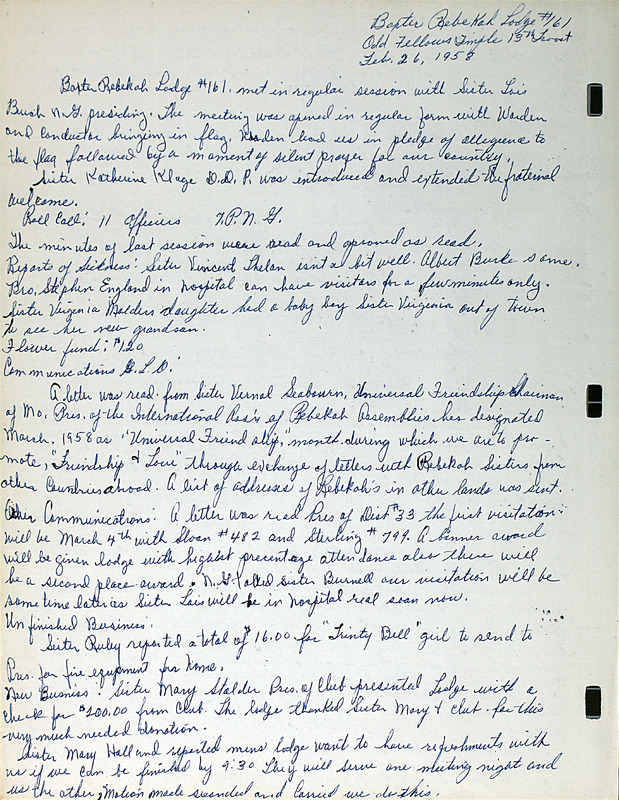 Baxter Rebekah Lodge #161
Odd Fellows Temple 15th Troost
Feb. 26, 1958
Baxter Rebekah Lodge #161. met in regular session with Sister Lois
Bush N.G. presiding. The meeting was opened in regular form with Warden
and conductor bringing in flag, Warden lead us in pledge of allegience to
the flag followed by a moment of silent prayer for our country.
Sister Katherine Kluge D.D.P. was introduced and extended the fraternal
welcome.
Roll Call: 11 Officers 7.P.N.G.
The minutes of last session were read and aproved as read.
Reports of Sickness: Sister Vincent Phelan isn't a bit well. Albert Burke same.
Bro. Stephen England in hospital can have visitors for a few minutes only.
Sister Virginia Malders daughter had a baby boy Sister Virginia out of town
to see her new grandson.
Flower fund: $1.20
Communications G.L.O.:
A letter was read from Sister Vernal Seabourn, Universal Friendship Chairman
of Mo. Pres. of the International Ass'n of Rebekah Assemblies has designated
March, 1958 as "Universal Friend ship," month during which we are to pro-
mote, "Friendship & Love" through exchange of letters with Rebekah Sisters from
other Countries abroad. A list of addresses of Rebekah's in other lands was sent.
Other Communications: A letter was read Pres of Dist #33 the first visitation
will be March 4th with Sloan #482 and Sterling #799. A banner award
will be given lodge with highest precentage attendance also there will
be a second place award. N.G. Sister Burnell our visitation will be
some time later as Sister Lois will be in hospital real soon now.
Unfinished Business:
Sister Ruby reported a total of $16.00 for "Trinty Bell" girl to send to
Pres. for fire equipment for home.
New Business: Sister Mary Stalder Pres. of Club presented Lodge with a
check for $200.00 from Club. The lodge thanked Sister Mary & club for this
very much needed donation.
Sister Mary Holland reported mens' lodge want to have refreshments with
us if we can be finished by 9:30 They will serve one meeting night and
us the other, Motion made seconded and carried we do this.